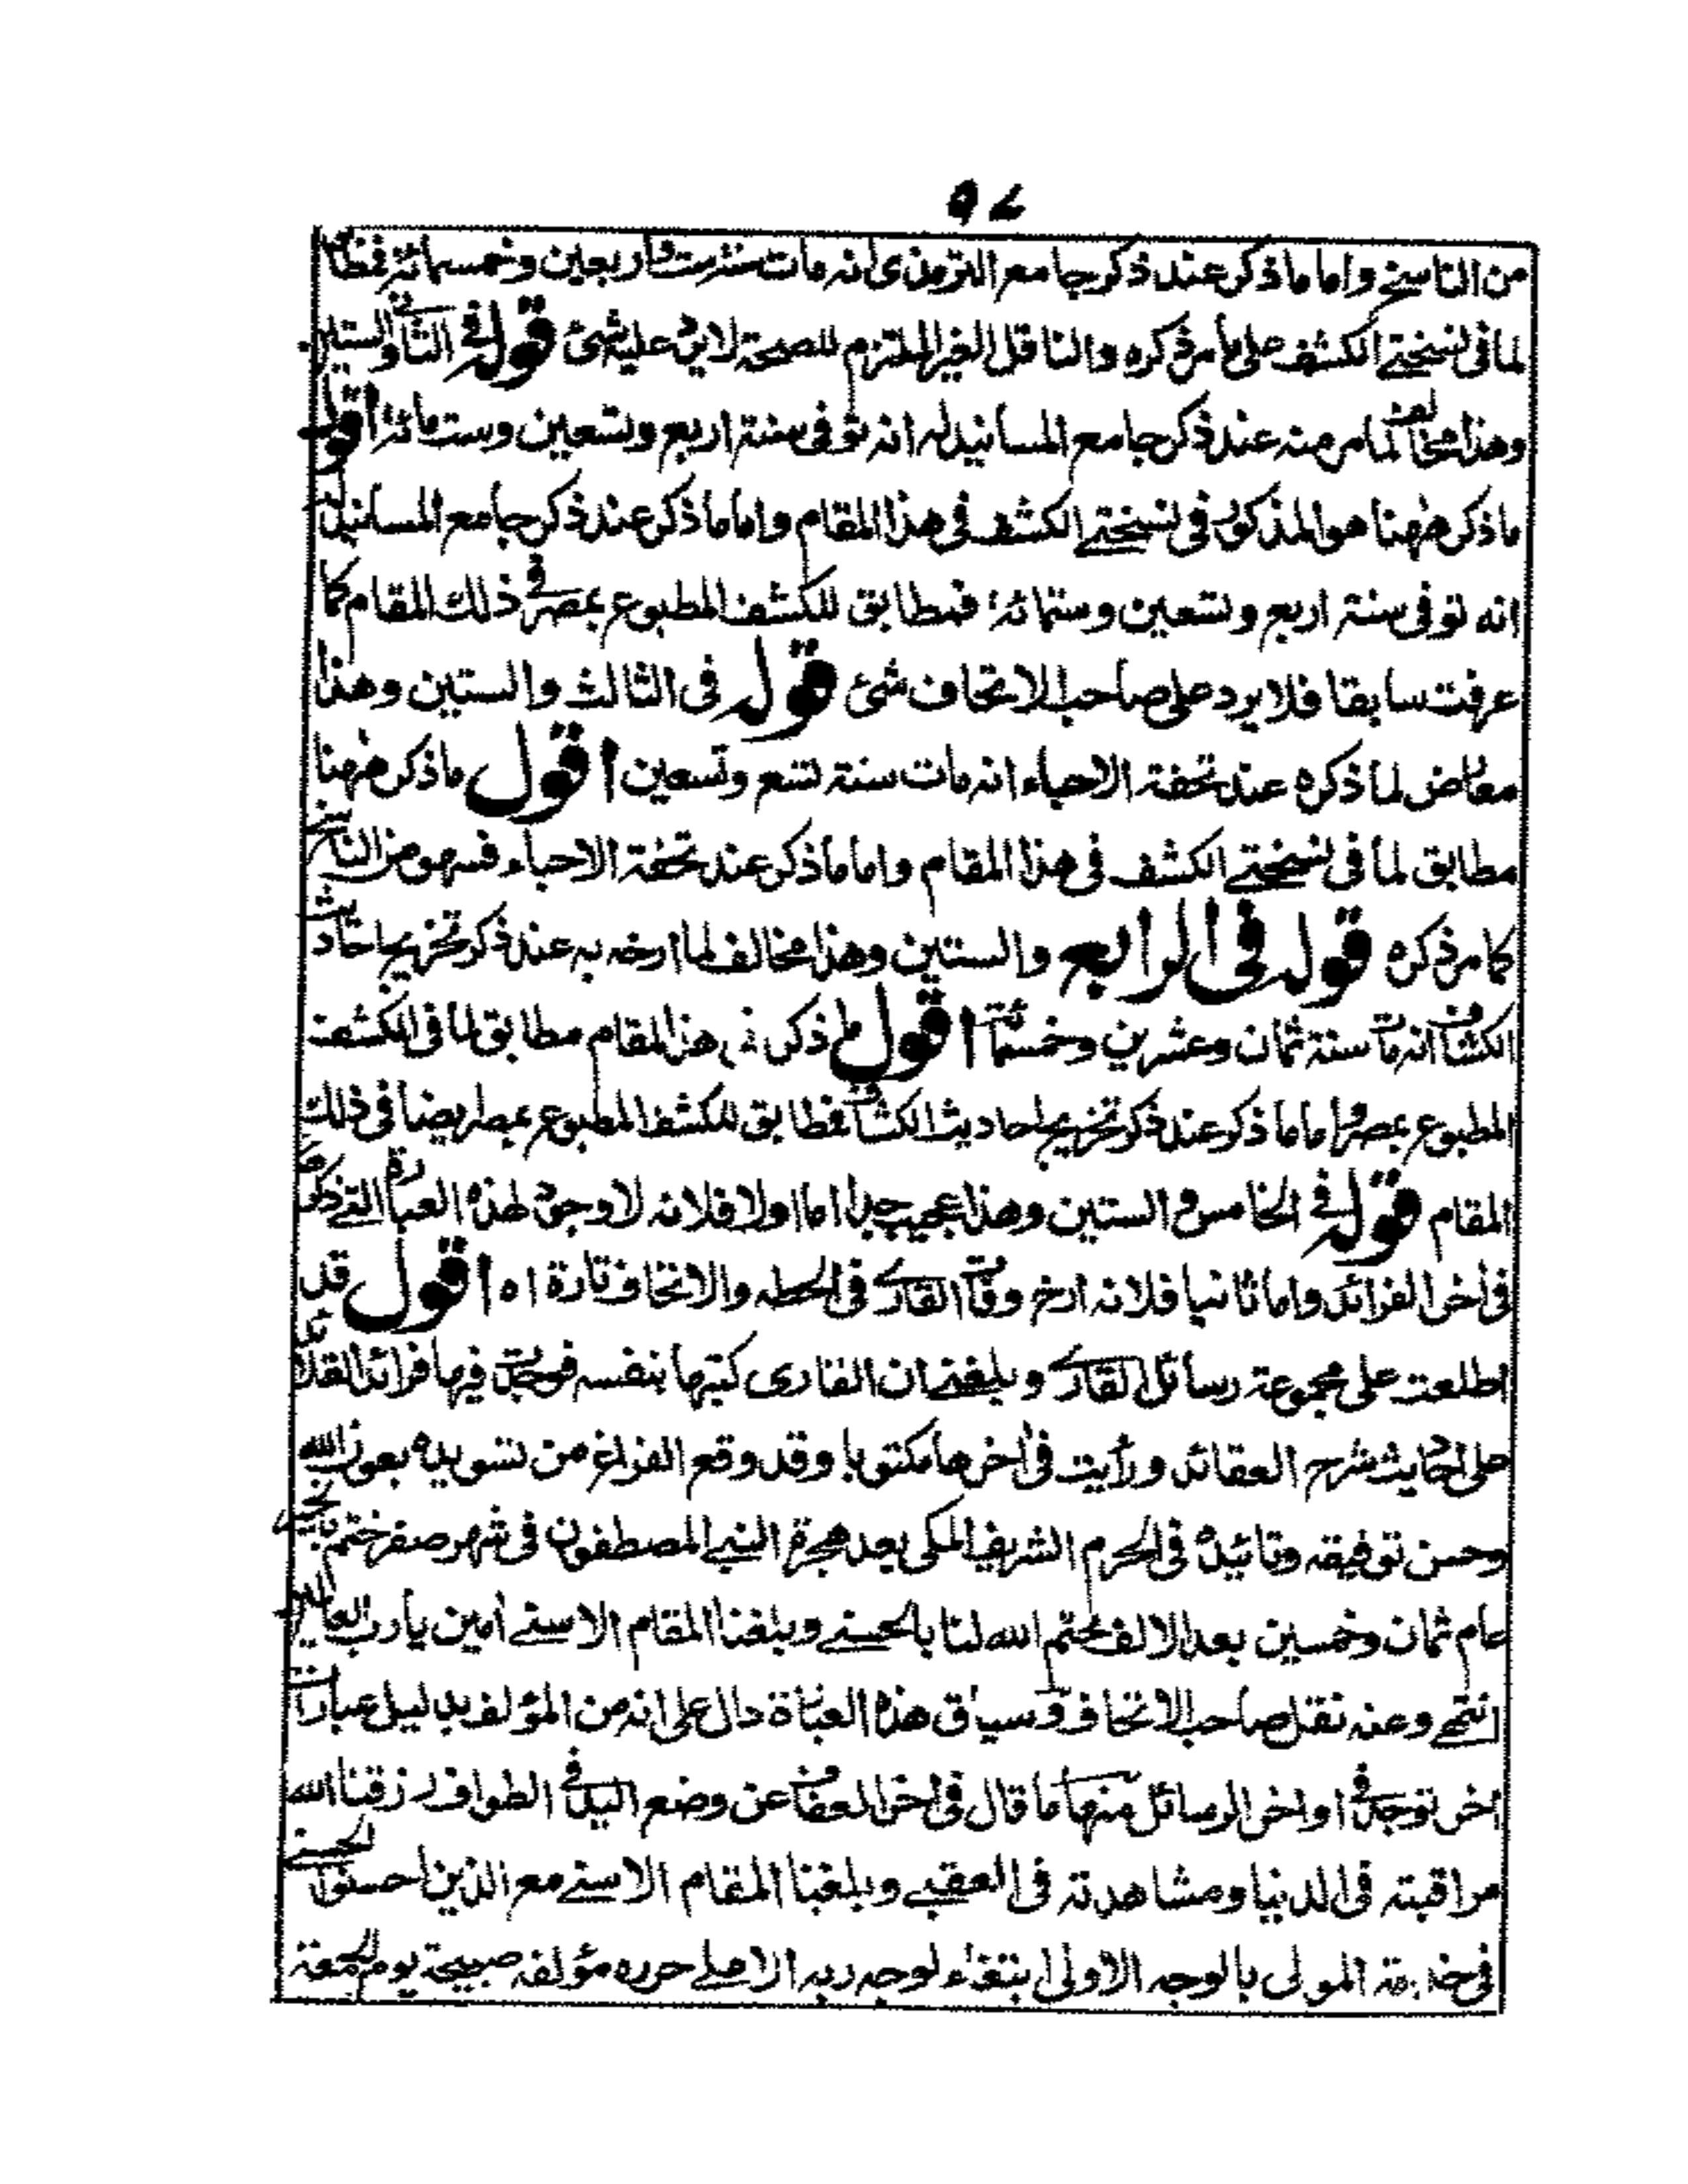 ٩٧
من الناسخ واما ما ذكر عند ذكر جامع الترمذى انه مات سنة ست واربعين وخمسمائة فمطابق
لما فى نسختے الكشف على ما مر ذكره والناقل الغير الملتزم للصحة لا يرد عليه شئ قوله فى الثانى والستين
وهذا مخالف لما مر منه عند ذكر جامع المسانيد له انه توفى سنة اربع وتسعين وست مائة اقول
ما ذكر ههنا هو المذكور فى نسختے الكشف فى هذا المقام واما ما ذكر عند ذكر جامع المسانيد
انه توفى سنة اربع وتسعين وستمائة فمطابق للكشف المطبوع بمصر فى ذلك المقام كما
عرفت سابقا فلا يرد على صاحب الاتحاف شئ قوله فى الثالث والستين وهذا
معارض لما ذكره عند تحفة الاحباء انه مات سنة تسع وتسعين اقول ما ذكر ههنا
مطابق لما فى نسختے الكشف فى هذا المقام واما ما ذكر عند تحفة الاحباء فسهو من الناسخ
كما مر ذكره قوله فى الرابع والستين وهذا مخالف لما ارخه به عند ذكر تخريج احاديث
الكشاف انه مات سنة ثمان وعشرين وخمسمائة اقول ما ذكر فى هذا المقام مطابق لما فى الكشف
المطبوع بمصر واما ما ذكر عند ذكر تخريج احاديث الكشاف فمطابق للكشف المطبوع بمصر ايضا فى ذلك
المقام قوله فى الخامس والستين وهذا عجيب جدا اما اولا فلانه لا وجود لهذه العبارة التے ذكرها
فى اخر الفرائد واما ثانيا فلانه ارخ وفات القارى فى الحطه والاتحاف تارة اه اقول قد
اطلعت على مجموعة رسائل القارى وبلغنے ان القارى كتبها بنفسه فوجدت فيها فرائد القلائد
على احاديث شرح العقائد ورأيت فى اخرها مكتوبا وقد وقع الفراغ من تسويده بعون الله
وحسن توفيقه وتائيده فى الحرم الشريف المكى بعد هجرة النبے المصطفوى فى شهر صفر ختم بالخير
عام ثمان وخمسين بعد الالف ختم الله لنا بالحسنے وبلغنا المقام الاسنے امين يا رب العالمين
انتهے وعنه نقل صاحب الاتحاف وسياق هذه العبارة دال على انه من المؤلف بدليل عبارات
اخر توجد فى اواخر الرسائل منها ما قال فى اخر العفاف عن وضع اليد فى الطواف رزقنا الله
مراقبته فى الدنيا ومشاهدته فى العقبے وبلغنا المقام الاسنے مع الذين احسنوا الحسنے
فى خدمة المولى بالوجه الاولى ابتغاء لوجه ربه الاعلے حرره مؤلفه صبيحة يوم الجمعة